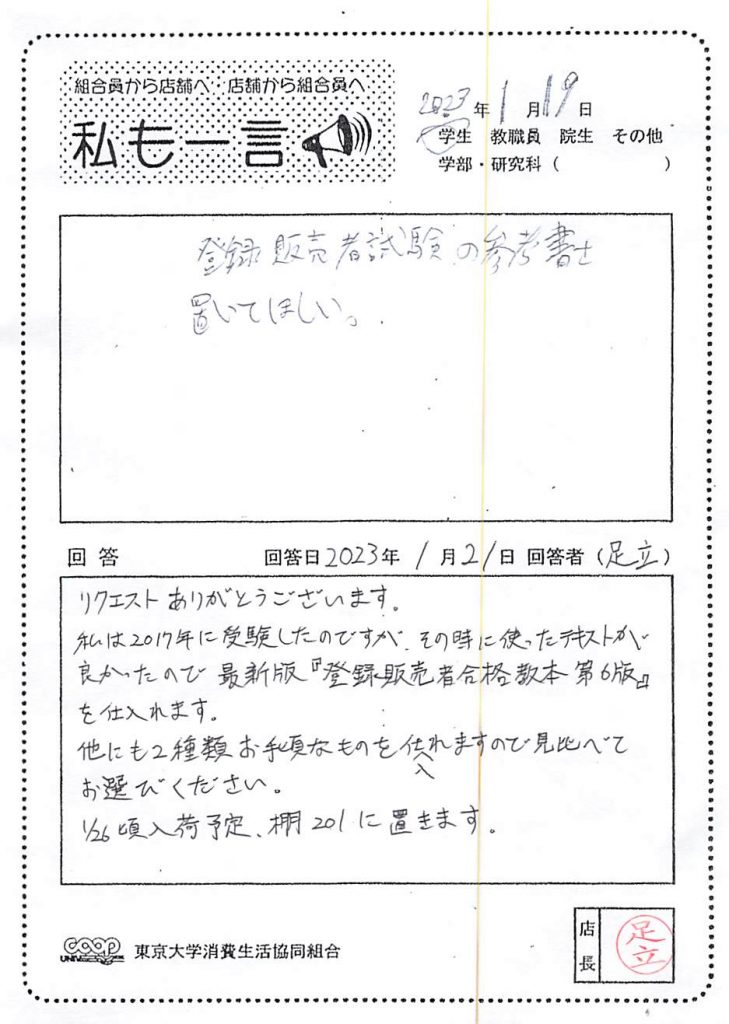 組合員から店舗へ・店舗から組合員へ
私も一言
2023年1月19日
学生 教職員 院生 その他
学部・研究科（ ）
登録販売者試験の参考書を
置いてほしい。
回答 回答日2023年1月21日 回答者（足立）
リクエストありがとうございます。
私は2017年に受験したのですが、その時に使ったテキストが
良かったので最新版『登録販売者合格教本 第6版』
を仕入れます。
他にも2種類お手頃なものを仕入れますので見比べて
お選びください。
1/26頃入荷予定、棚201に置きます。
coop
UNIV
東京大学消費生活協同組合
店長
足立